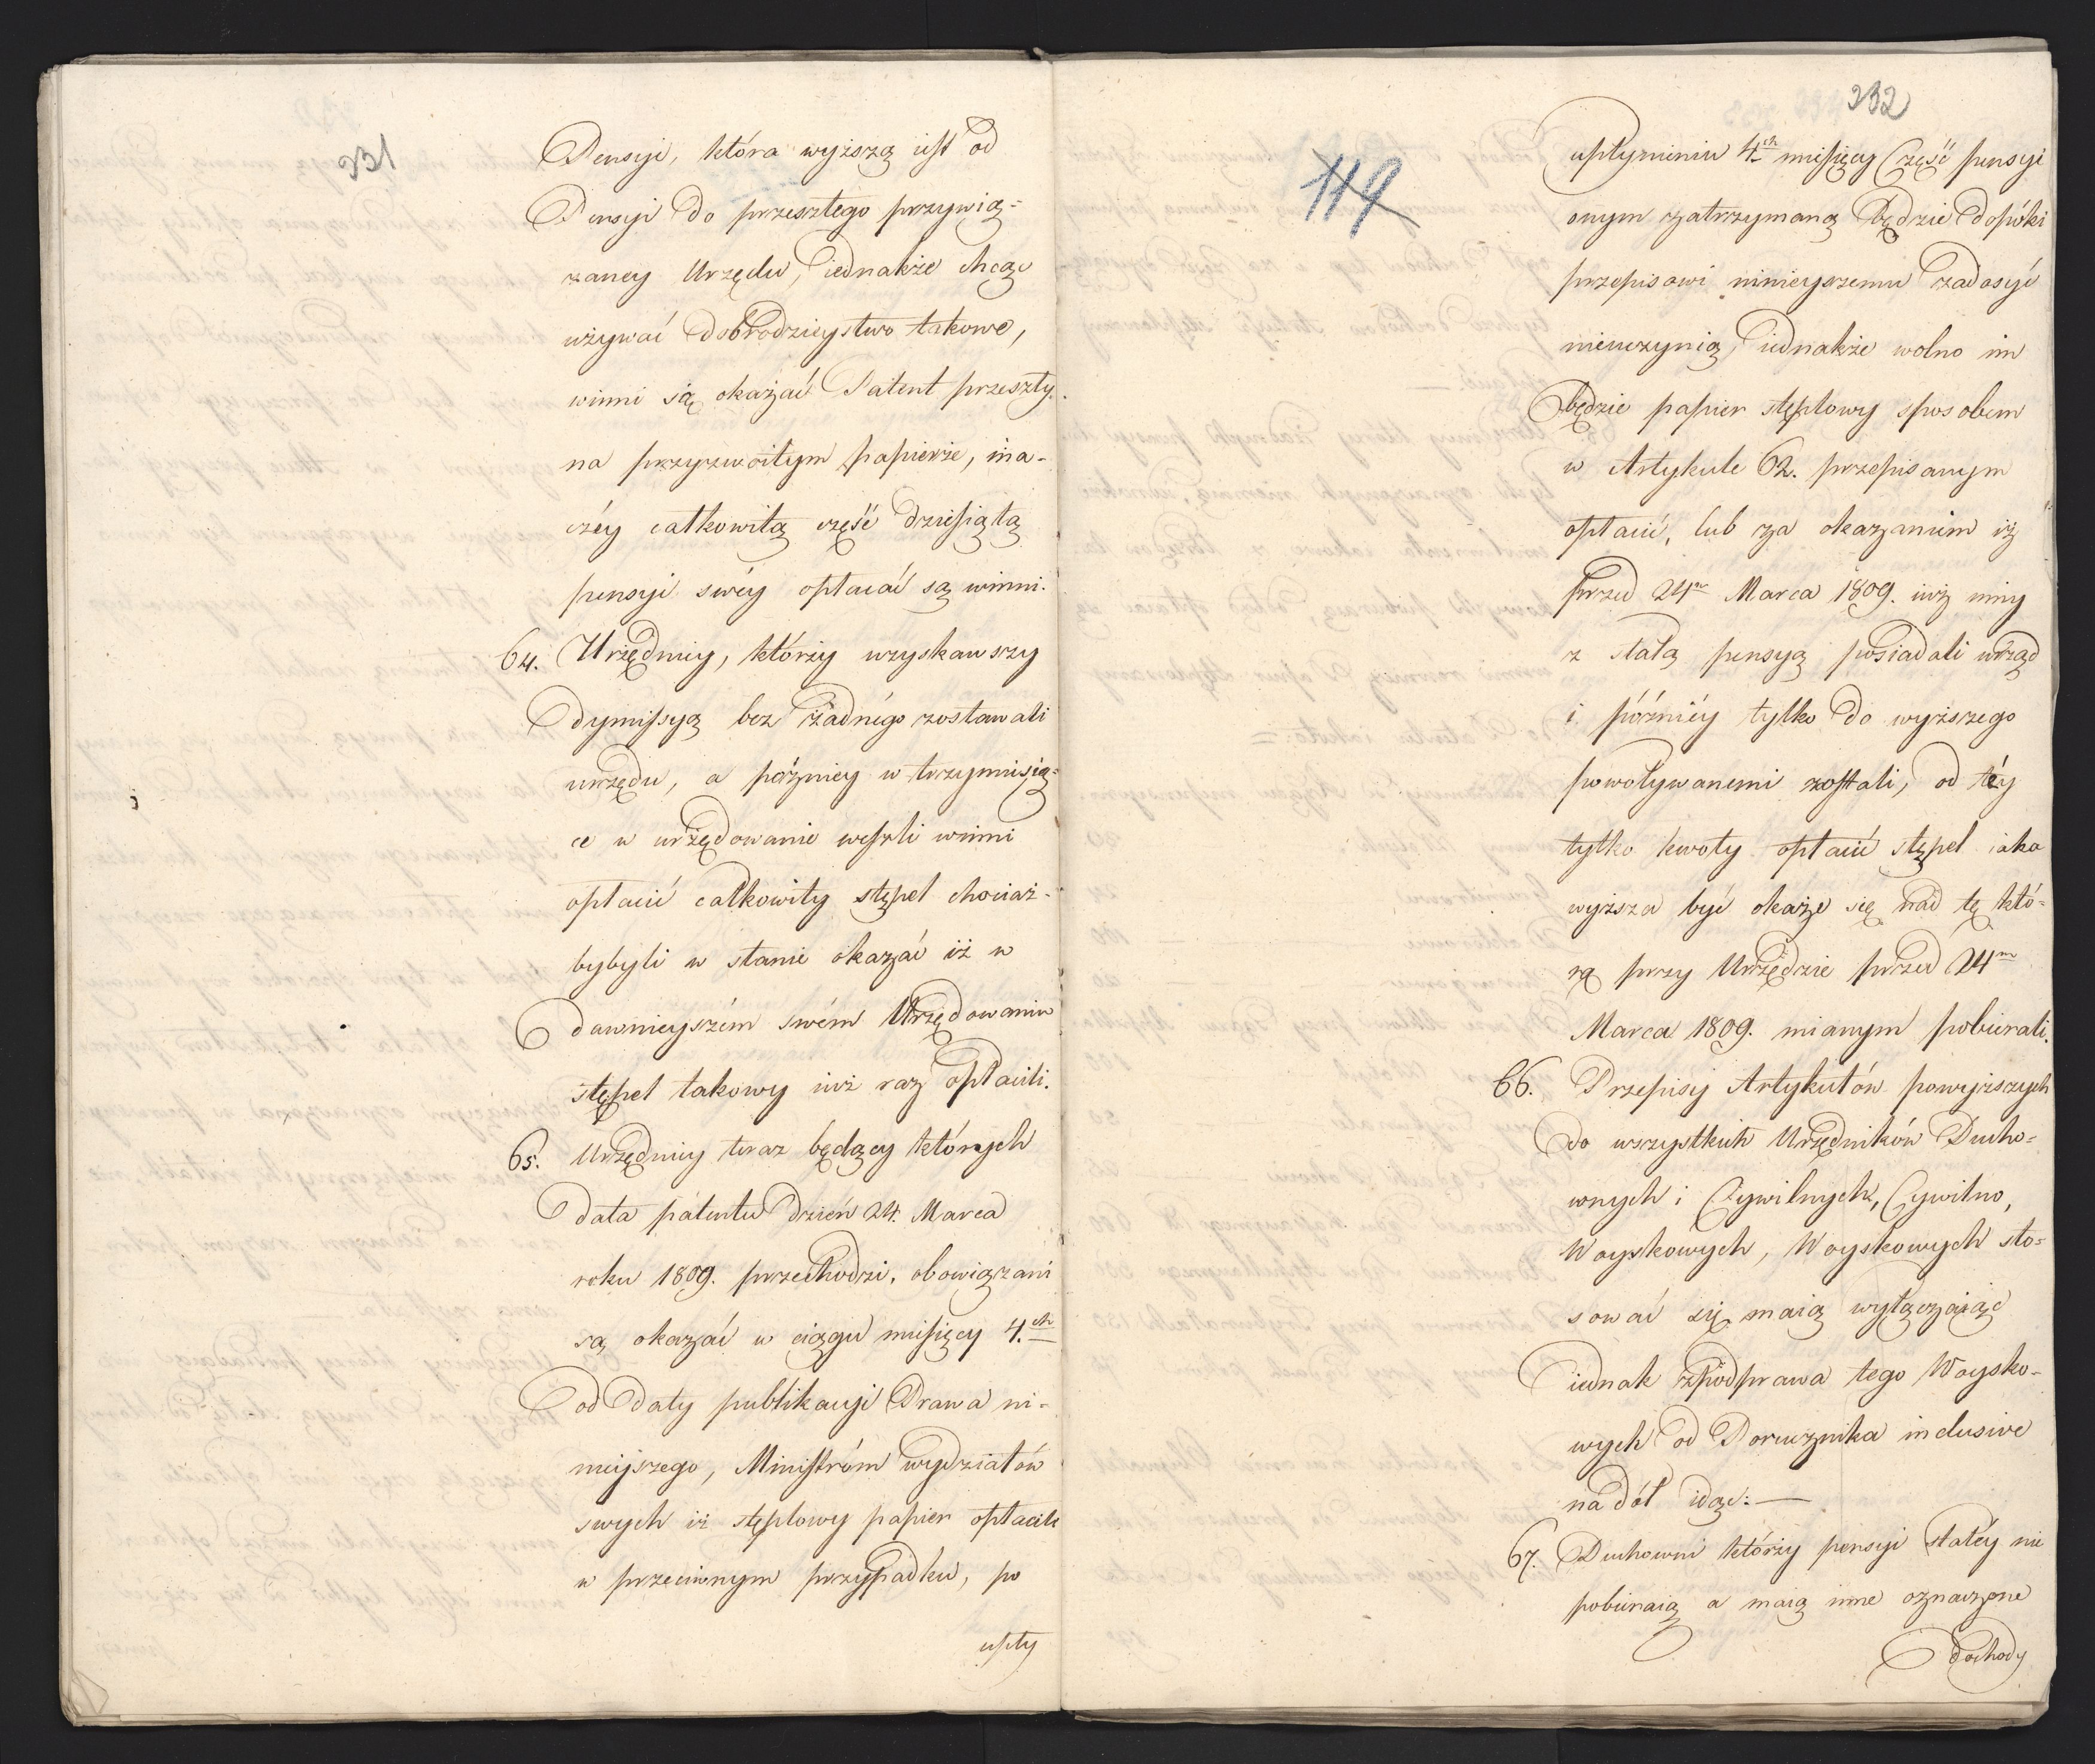 231
Pensyi, która wyższą iest od
Pensyi do przeszłego przywią=
zaney Urzędu, iednakże chcąc
używać dobrodzieystwo takowe,
winni są okazać Patent przeszły.
na przyzwoitym papierze, ina-
czéy całkowitą część dziesiątą
pensyi swéy opłacać są winni.
64. Urzędnicy, którzy uzyskawszy
dymissyą bez żadnégo zostawali
urzędu, a późniey w trzymiesią=
ce w urzędowanie weszli winni
opłacić całkowity stępel chociaż-
bybyli w stanie okazać iż w
dawnieyszém swém Urzędowaniu
stępel takowy iuż raz opłacili.
65. Urzędnicy teraz będący których
data patentu dzień 24. Marca
roku 1809. przechodzi, obowiązani
są okazać w ciągu miesięcy 4.ch
od daty publikacyi Prawa ni-
nieiszego, Ministróm wydziałów
swych iż stęplowy papier opłacili
w przeciwnym przypadku, po
upły
232
119
upłynieniu 4.ch miesięcy część pensyi
onym zatrzymaną będzie dopóki
przepisowi ninieyszemu zadosyć
nieuczynią, iednakże wolno im
będzie papier stęplowy sposobem
w Artykule 62. przepisanym
opłacić, lub za okazaniem iż
przed 24m Marca 1809. iuż inny
z stałą pensyą posiadali urząd
i późniéy tylko do wyższego
powoływanemi zostali, od téy
tylko kwoty opłacić stępel iaka
wyższa być okaże się nad tę któ=
rą przy Urzędzie przed 24m
Marca 1809. mianym pobierali.
66. Przepisy Artykułów powyższych
do wszystkich Urzędników Ducho=
wnych i Cywilnych, Cywilno,
Woyskowych, Woyskowych sto=
sować się maią wyłączaiąc
iednak zpodprawa tego Woysko-
wych od Porucznika inclusive
na dół idąc: —
67. Duchowni którzy pensyi stałéy nie
pobieraią a maią inne oznaczone
dochody